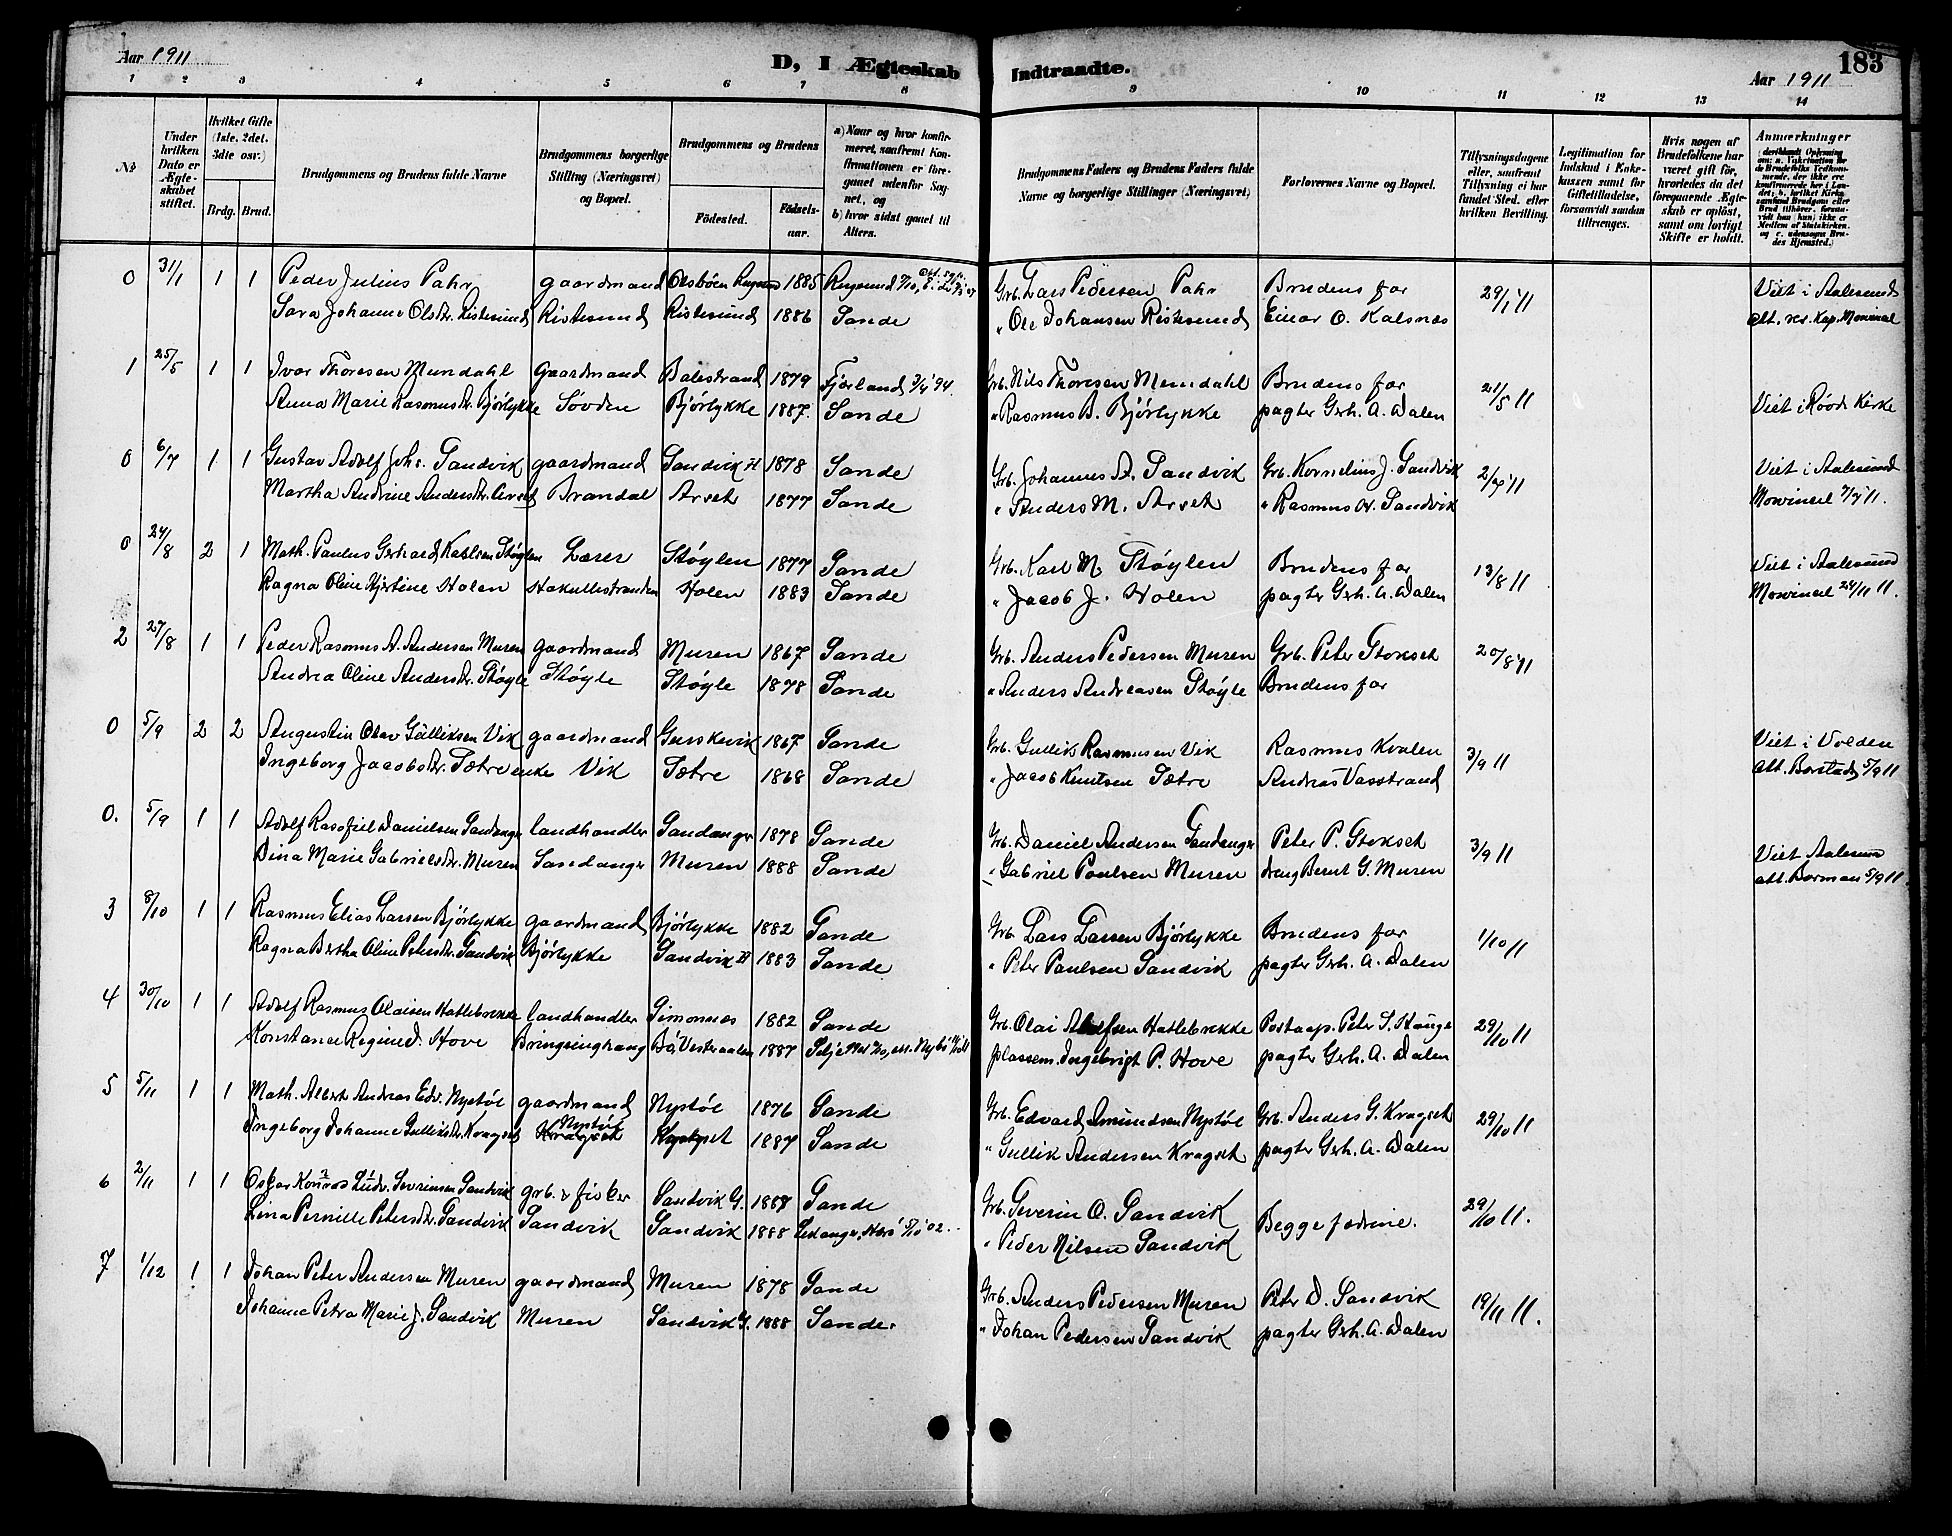 Aar 1911
D, I Ægteskab Indtraadte.
Aar 1911
183
1 2 3 4 5 6 7 8 9 10 11 12 13 14
No.
Under hvilken Dato er Ægteskabet stiftet.
Hvilket Gifte (1ste. 2det. 3die osv.)
Brdg. Brud.
Brudgommens og Brudens fulde Navne
Brudgommens borgerlige Stilling (Næringsvei) og Bopæl.
Brudgommens og Brudens
Födested.
Födselsaar.
a) Naar og hvor konfirmeret, saafremt Konfirmationen er foregaaet udenfor Sognet, og
b) hvor sidst gaaet til Alters.
Brudgommens Faders og Brudens Faders fulde Navne og borgerlige Stillinger (Næringsvei)
Forlovernes Navne og Bopæl.
Tillysningsdagene eller, saafremt Tillysning ei har fundet Sted, efter hvilken Bevilling.
Legitimation for Indskud i Enkekassen samt for Giftetilladelse, forsaavidt saadan tiltrænges.
Hvis nogen af Brudefolkene har været gift för, hvorledes da det foregaaende Ægteskab er oplöst, samt om lovligt Skifte er holdt.
Anmærkninger
0 31/1 1 1 Peder Julius Pahr gaardmand Olsböen Rugsund 1885 Rugsund Grb. Lars Pedersen Pahr Brudens far 29/1 11 Viet i Aalesund
Sara Johanne Olsdtr. Ristesund Ristesund Ristesund 1886 Sande " Ole Johansen Ristesund Einar O. Kalsnæs att. res. kap. Mowinckel
1 25/5 1 1 Ivar Thoresen Mundahl gaardmand Balestrand 1879 Fjærland '94. Grb. Nils Thoresen Mundahl Brudens far 21/5 11
Anna Marie Rasmusdtr. Bjørlykke Søvden Bjørlykke 1887. Sande " Rasmus B. Bjørlykke pagter Gerh. A. Dalen Viet i Røvde Kirke
0 6/7 1 1 Gustav Adolf Johs. Sandvik gaardmand Sandvik H 1878 Sande Grb. Johannes A. Sandvik Grb. Kornelius J. Sandvik 2/7 11 Viet i Aalesund
Martha Andrine Andersdtr. Arset Brandal Arset 1877 Sande " Anders M. Arset " Rasmus A. Sandvik Mowinckel 7/7 11.
0 24/8 2 1 Math. Paulus Gerhard Karlsen Støylen Lærer Støylen 1877 Sande Grb. Karl M. Støylen Brudens far 13/8 11 Viet i Aalesund
Ragna Oline Kjrstine Holen Hakallestranden Holen 1883 Sande " Jacob J. Holen pagter Gerh. A. Dalen Mowinckel 24/11 11.
2 27/8 1 1 Peder Rasmus A. Andersen Muren gaardmand Muren 1867 Sande Grb. Anders Pedersen Muren Grb. Peter Stokset 20/8 11
Andrea Oline Andersdtr. Støyle Støyle Støyle 1878 Sande " Anders Andreasen Støyle Brudens far
0 5/9 2 2 Augustin Olav Gulliksen Vik gaardmand Gurskevik 1867 Sande Grb. Gullik Rasmusen Vik Rasmus Kvalen 3/9 11 Viet i Volden
Ingeborg Jacobsdtr. Sætre enke Vik Sætre 1868 Sande " Jacob Knutsen Sætre Andreas Vasstrand att. Borstad 5/9 11
0. 5/9 1 1 Adolf Rasofiel Danielsen Sandanger landhandler Sandanger 1878 Sande Grb. Daniel Andersen Sandanger Peter P. Stokset 3/9 11 Viet Aalesun
Dina Marie Gabrielsdtr. Muren Sandanger Muren 1888 Sande " Gabriel Poulsen Muren dreng Bernt G. Muren att. Borman 5/9 11.
3 8/10 1 1 Rasmus Elias Larsen Bjørlykke gaardmand Bjørlykke 1882 Sande Grb. Lars Larsen Bjørlykke Brudens far 1/10 11
Ragna Bertha Oline Petersdtr. Sandvik Bjørlykke Sandvik H 1883 Sande " Peter Paulsen Sandvik pagter Gerh. A. Dalen
4 30/10 1 1 Adolf Rasmus Olaisen Hatlebrekke landhandler Simonnes 1882 Sande Grb. Olai Hatlebrekke Postaap. Peter S. Hauge 29/10 11
Konstance Regine d. Hove Bringsinghaug Bø Vesteraalen 1887 Selje plassem. Ingebrigt P. Hove pagter Gerh. A. Dalen
5 5/11 1 1 Math. Albert Andreas Edv. Nystøl gaardmand Nystøl 1876 Sande Grb. Edvard Amundsen Nystøl Grb. Anders G. Kragset 29/10 11
Ingeborg Johanne Gulliksdtr. Kragset Kragset Nystøl 1887 Sande " Gullik Andersen Kragset pagter Gerh. A. Dalen
6 2/11 1 1 Oskar Konrad Ludv. Severinsen Sandvik grb. & fisker Sandvik G. 1887 Sande Grb. Severin O. Sandvik Begge fædrene. 29/10 11.
Lina Pernille Petersdtr. Sandvik Sandvik Sandvik 1888 '02. " Peder Nilsen Sandvik
7 1/12 1 1 Johan Peter Andersen Muren gaardmand Muren 1878 Sande Grb. Anders Pedersen Muren Peter D. Sandvik 19/11 11.
Johanne Petra Marie J. Sandvik Muren Sandvik G. 1888 Sande. " Johan Pedersen Sandvik pagter Gerh. A. Dalen